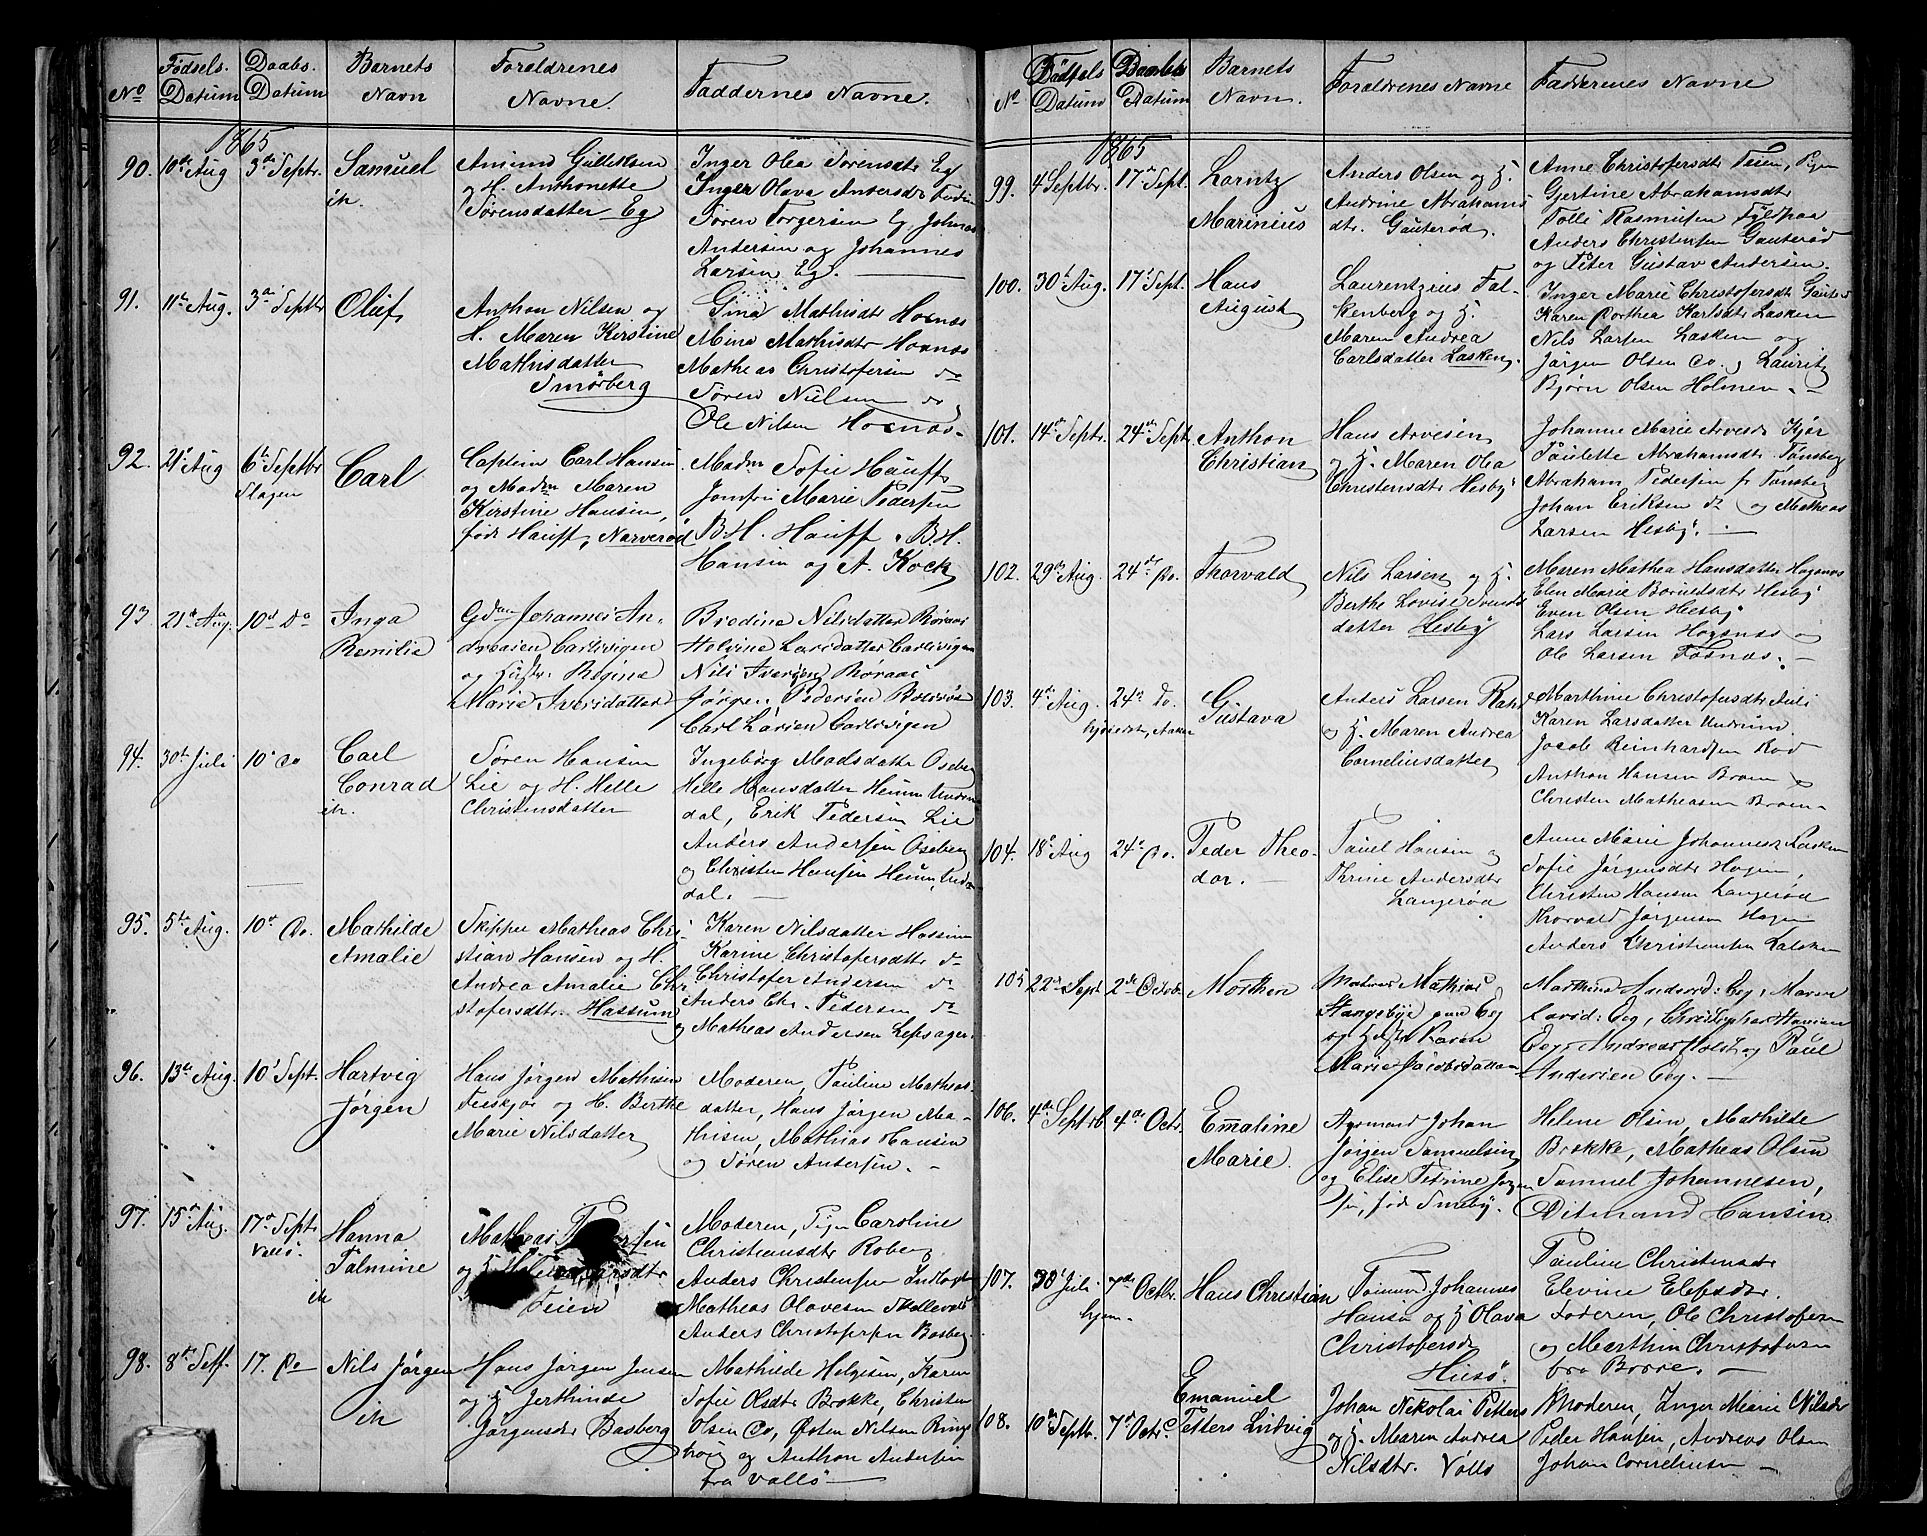 No Fødsels Datum Daabs Datum Barnets Navn Foraldrenes Navne. Faddernes Navne.
1865
90. 10de Aug 3de Septr. Samuel
ik.
Amund Gulliksen
og H. Anthonette
Sørensdatter Eg
Inger Olea Sørensdt Eg
Inger Olava Andersdt
Søren Torgersen Eg, Johnas
Andersen og Johannes
Larsen Eg.
91. 11te Aug. 3de Septbr Oluf
Anthon Nilsen og
H. Maren Kirstine
Mathisdatter
Smørberg
Gina Mathisdt Hognæs
Mina Mathisdtr Hognæs
Matheas Christofersen do
Søren Nielsen do
Ole Nilsen Hognæs.
92. 21de Aug 6te Septbr Carl
Slagen
Captein Carl Hansen
og Madm Maren
Kirstine Hansen,
født Hauff, Narverød
Madm Sofie Hauff
Jomfru Marie Pedersen
B. H. Hauff, B. H.
Hansen og A. Kock
93 21de Aug. 10d Do Inga
Remilia
Gdm Johannes An-
dreasen Carlsvigen
og Hustr. Regina
Marie Iversdatter
Bredina Nilsdatter Røraas
Helvine Larsdatter Carlsvigen
Nils Iversen Røraas
Jørgen Pedersen
Carl Larsen Carlsvigen
94. 30te Juli 10d Do Carl
Conrad
ik.
Søren Hansen
Lie og H. Helle
Christensdatter
Ingeborg Madsdatter Oseberg
Helle Hansdatter Heum Undrum
dal, Erik Pedersen Lie
Anders Andersen Oseberg
og Christen Hansen Heum, Undrum
dal.
95. 5te Aug. 10d Do. Mathilde
Amalie
Skipper Matheas Chri-
stian Hansen og H.
Andrea Amalie Chr
stofersdtr. Hassum
Karen Nilsdatter Hassum
Karine Christofersdtr do
Christofer Andersen do
Anders Chr. Pedersen do
og Matheas Andersen Lepsager.
96. 13de Aug. 10d Sept. Hartvig
Jørgen
Hans Jørgen Mathisen
og H. Berthe
Marie Nilsdatter
Moderen, Pauline Matheas-
datter, Hans Jørgen Ma-
thisen, Mathias Hansen
og Søren Andersen.
97. 15de Aug. 17de Septr Hanna
Vallø. Palmine
ik
Matheas
og H.
Feien
Moderen, Pigen Caroline
Christiansdtr Roberg
Anders Christensen
Matheas Olavesen Skallevold
Anders Christofersen Basberg
98. 8de Sept. 17. Do Nils Jørgen
ik
Hans Jørgen Jensen
og H. Jerthinde
Jørgensdtr Basberg
Mathilde Helgesen, Karen
Sofie Olsdtr Brokke, Christen
Olsen Do, Østen Nilsen Rings
houg og Anthon Andersen
fra Vallø
No Fødsels Datum Daabs Datum Barnets Navn. Foraldrenes Navne Faddernes Navne
1865
99. 4 Septbr. 17de Sept. Laritz
Marinius
Anders Olsen og H.
Andrine Abrahams
dtr. Gauterød.
Anne Christofersdtr Feien, Pigen
Gjertine Abrahamsdtr
Tolli Rasmusen
Anders Christensen Gauterød
og Peter Gustav Andersen.
100. 30te Aug. 17d Sept. Hans
August
Laurentzius Fal-
kenberg og H.
Maren Andrea
Carlsdatter Lasken.
Inger Marie Christofersdt Gauterød
Karen Dorthea Karlsdt Lasken
Nils Larsen Lasken og
Jørgen Olsen Do. og Lauritz
Bjørn Olsen Holmen.
101. 14de Septr. 24de Sept Anthon
Christian
Hans Arvesen
og H. Maren Olea
Christensdtr Hesby
Johanne Marie Arvesdt Kjær
Paulette Abrahamsdt Tønsberg
Abraham Pedersen fr Tønsberg
Johan Eriksen do og Matheas
Larsen Hesby.
102. 29de Aug. 24de Do. Thorvald
Nils Larsen og H.
Berthe Lovise Svends
datter Hesby
Maren Mathea Hansdatter Hognæs
Elen Marie Bornildsdt Hesby
Even Olsen Hesby
Lars Larsen Hognæs og
Ole Larsen Fosnæs.
103. 4de Aug. 24de Do. Gustava
Anders Larsen
og H. Maren Andrea
Corneliusdatter
Marthine Christofersdtr Auli
Karen Larsdatter Undrum.
Jacob Reinhardsen Rod
Anthon Hansen Broen og
Christen Matheasen Broen.
104. 18d Aug 24de Do. Peder Theo-
dor.
Paul Hansen og
Thrine Andersdtr
Langerød
Anne Marie Johannesdt Lasken
Sofie Jørgensdtr Hogen,
Christen Hansen Langerød
Thorvald Jørgensen Hogen
Anders Christiansen Lasken
105 22de Sept 2de Octob. Morthen
Mathias
Stangebye paa Eeg
og Hustr Karen
Marie Jacobsdatter
Marthine Andersd: Eeg, Maren
Larsd: Eeg, Christopher Hansen
Eeg, Andreas Holst og Paul
Andersen Eeg.
106. 4de Septrb 4de Octr. Emaline
Marie.
Agsmand Johan
Jørgen Samuelsen
og Elise Petrine Jørgen
sen, født Smeby.
Helene Olsen, Mathilde
Brokke, Matheas Olsen
Samuel Johannesen,
Ditmand Hansen
107. 30d Juli 7de Octbr. Hans Christian
hjem.
Tømmermd Johannes
Hansen og H Olava
Christofersdt
Husø.
Pauline Christensdt
Elevine Elefsdtr.
Faderen, Ole Christofersen
og Marthin Christofersen
fra Borre.
108. 10de Septb. 7de Octr. Emanuel
Petters Ludvig
Johan Nikolai Petters
og H. Maren Andrea
Nilsdtr. Vallø
Moderen, Inger Marie Nilsdtr
Peder Hansen, Andreas Olsen
Johan Corneliusen